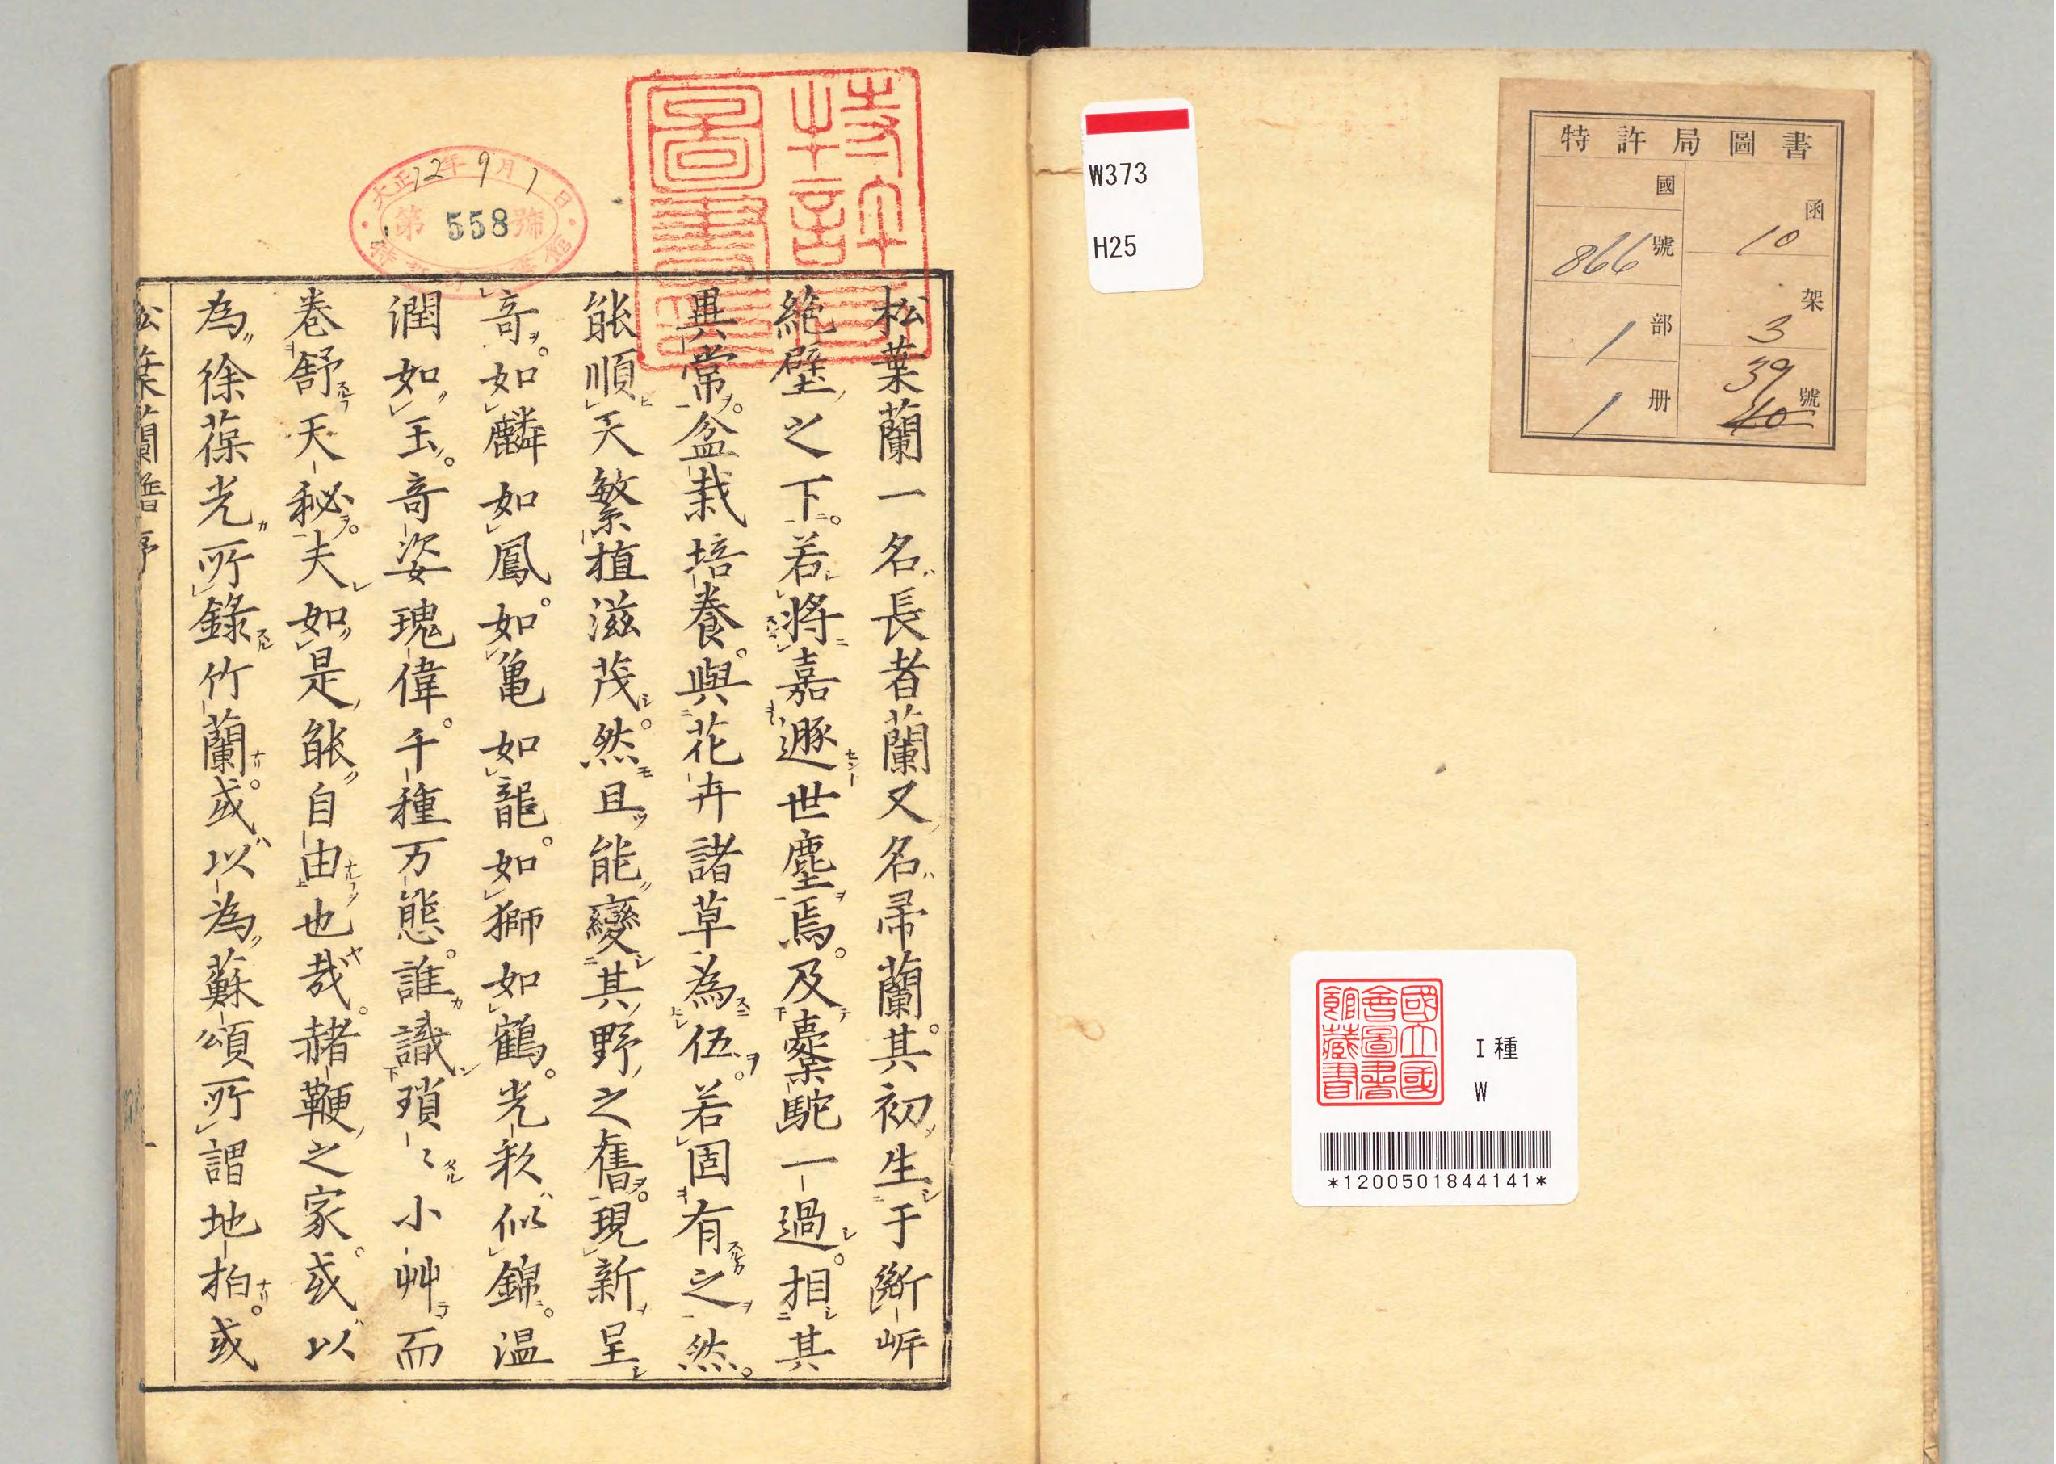 特許局圖書
函 10
架 3
號 39 40
國
號 866
部 1
册 1
W373
H25
國立國
會圖書
館藏書
I種
W
*1200501844141*
特許局
圖書
大正12年9月1日
第558號
松葉蘭一名長者蘭又名帚蘭。其初生于斷岸
絶壁之下。若將嘉遯世塵焉。及槖駝一過。相其
異常。盆栽培養。與花卉諸草為伍。若固有之然。
能順天繁植滋茂。然且能變其野之舊。現新呈
奇。如麟如鳳。如亀如龍。如獅如鶴。光彩似錦。温
潤如玉。奇姿瑰偉。千種万態。誰識瑣〻小艸而
巻舒天秘。夫如是能自由也哉。赭鞭之家。或以
為徐葆光所錄竹蘭。或以為蘇頌所謂地柏。或
松葉蘭譜序
一